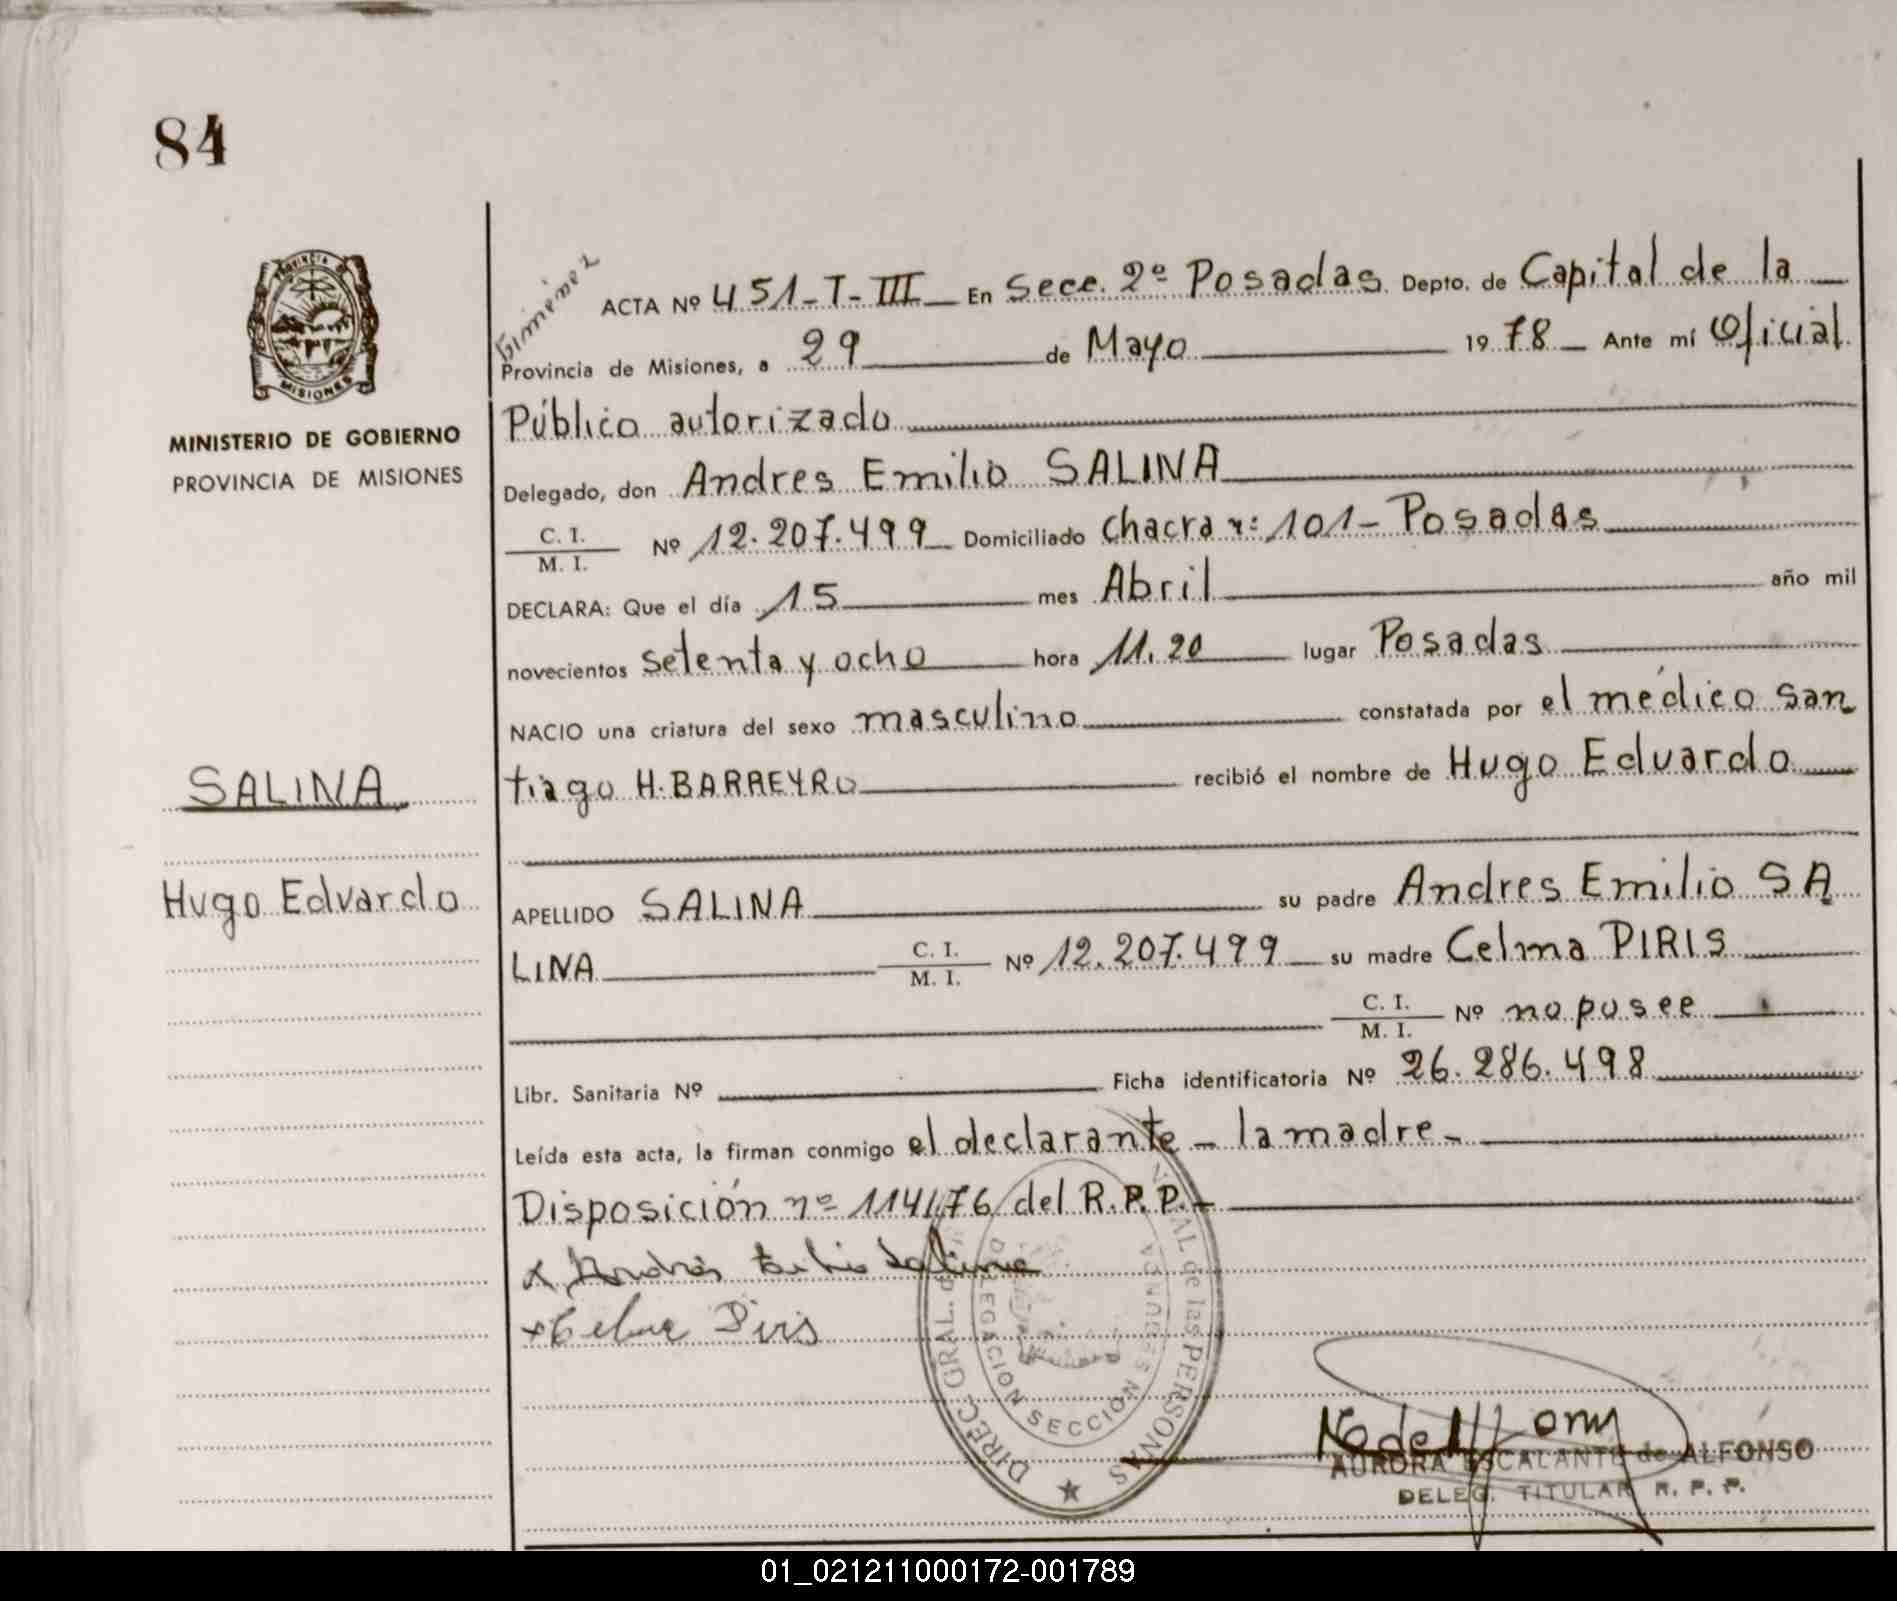 84
Gimenez
PROVINCIA DE
MISIONES
MINISTERIO DE GOBIERNO
PROVINCIA DE MISIONES
SALINA
Hugo Eduardo
ACTA Nº 451-T-III En Secc. 2º Posadas Depto. de Capital de la
Provincia de Misiones, a 29 de Mayo 1978 Ante mí Oficial
Público autorizado
Delegado, don Andres Emilio SALINA
C. I.
M. I. Nº 12.207.499 Domiciliado Chacra nº 101- Posadas
DECLARA: Que el día 15 mes Abril año mil
novecientos setenta y ocho hora 11.20 lugar Posadas
NACIO una criatura del sexo masculino constatada por el médico San
tiago H. BARREYRO recibió el nombre de Hugo Eduardo
APELLIDO SALINA su padre Andres Emilio SA
LINA C. I.
M. I. Nº 12.207.499 su madre Celma PIRIS
C. I.
M. I. Nº no posee
Libr. Sanitaria Nº Ficha identificatoria Nº 26.286.498
Leída esta acta, la firman conmigo el declarante - la madre-
Disposición nº 114/76 del R.P.P.-
x Andrés Salina
x Celma Piris
DIREC. GRAL. de las PERSONAS
DELEGACION SECCION SEGUNDA
AURORA ESCALANTE de ALFONSO
DELEG. TITULAR R. P. P.
01_021211000172-001789